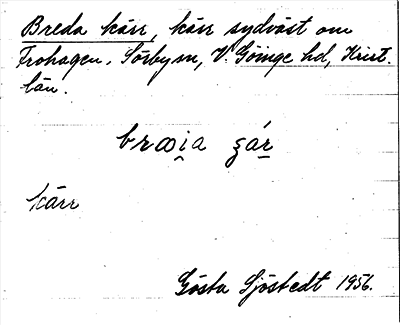 Breda kärr, kärr sydväst om
Frohagen. Sörbym, V. Göinge hd, Krist.
län.
kärr
Gösta Sjöstedt 1956.